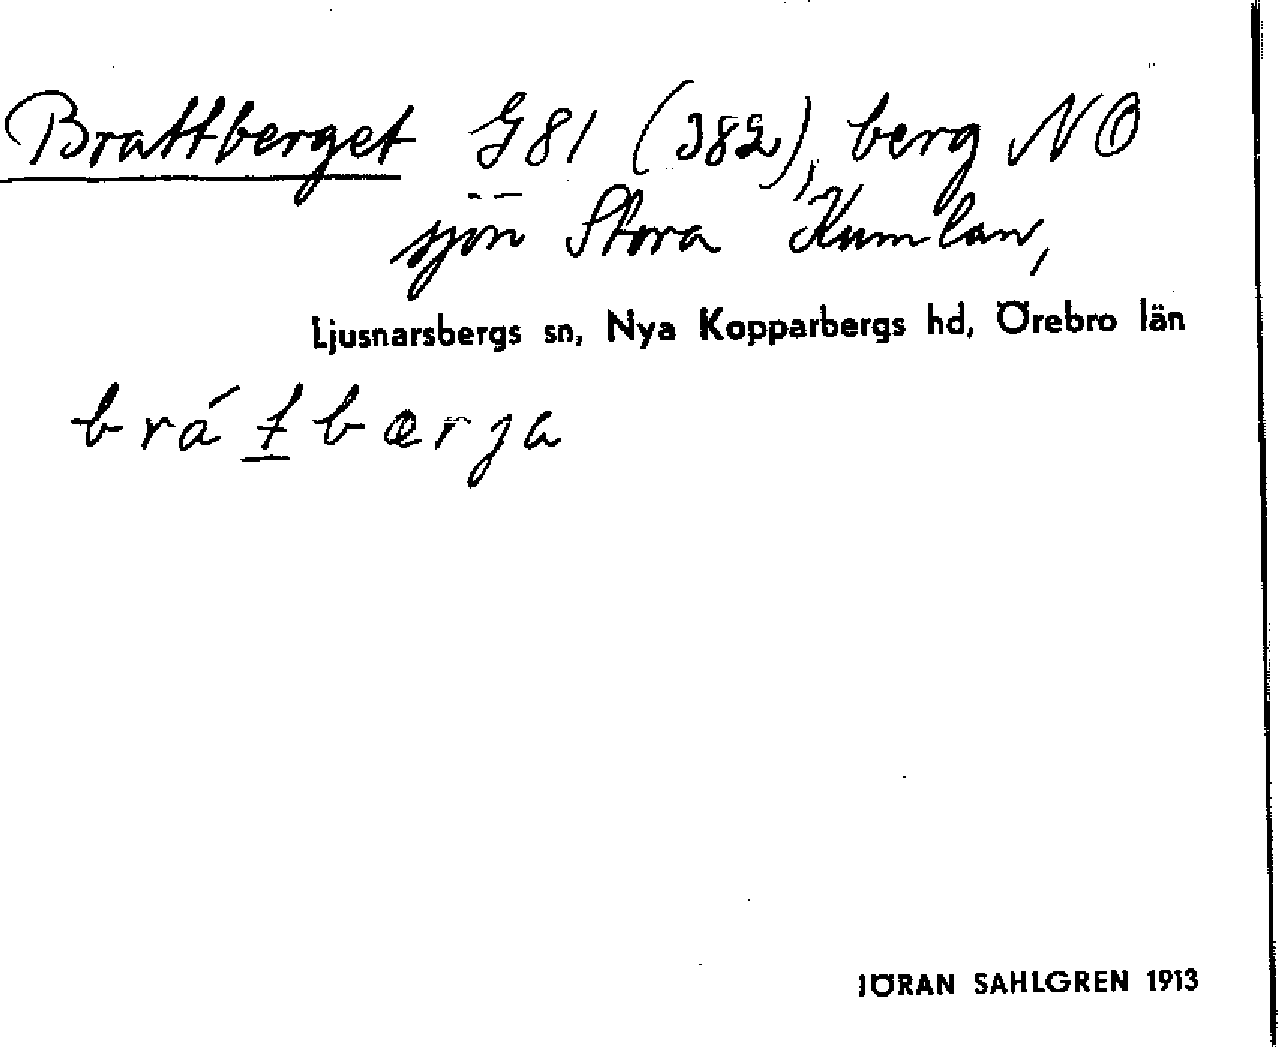 Brattberget G81 (382), berg NO
sjön Stora Kumlan,
Ljusnarsbergs sn, Nya Kopparbergs hd, Örebro län
brátbærja
JÖRAN SAHLGREN 1913